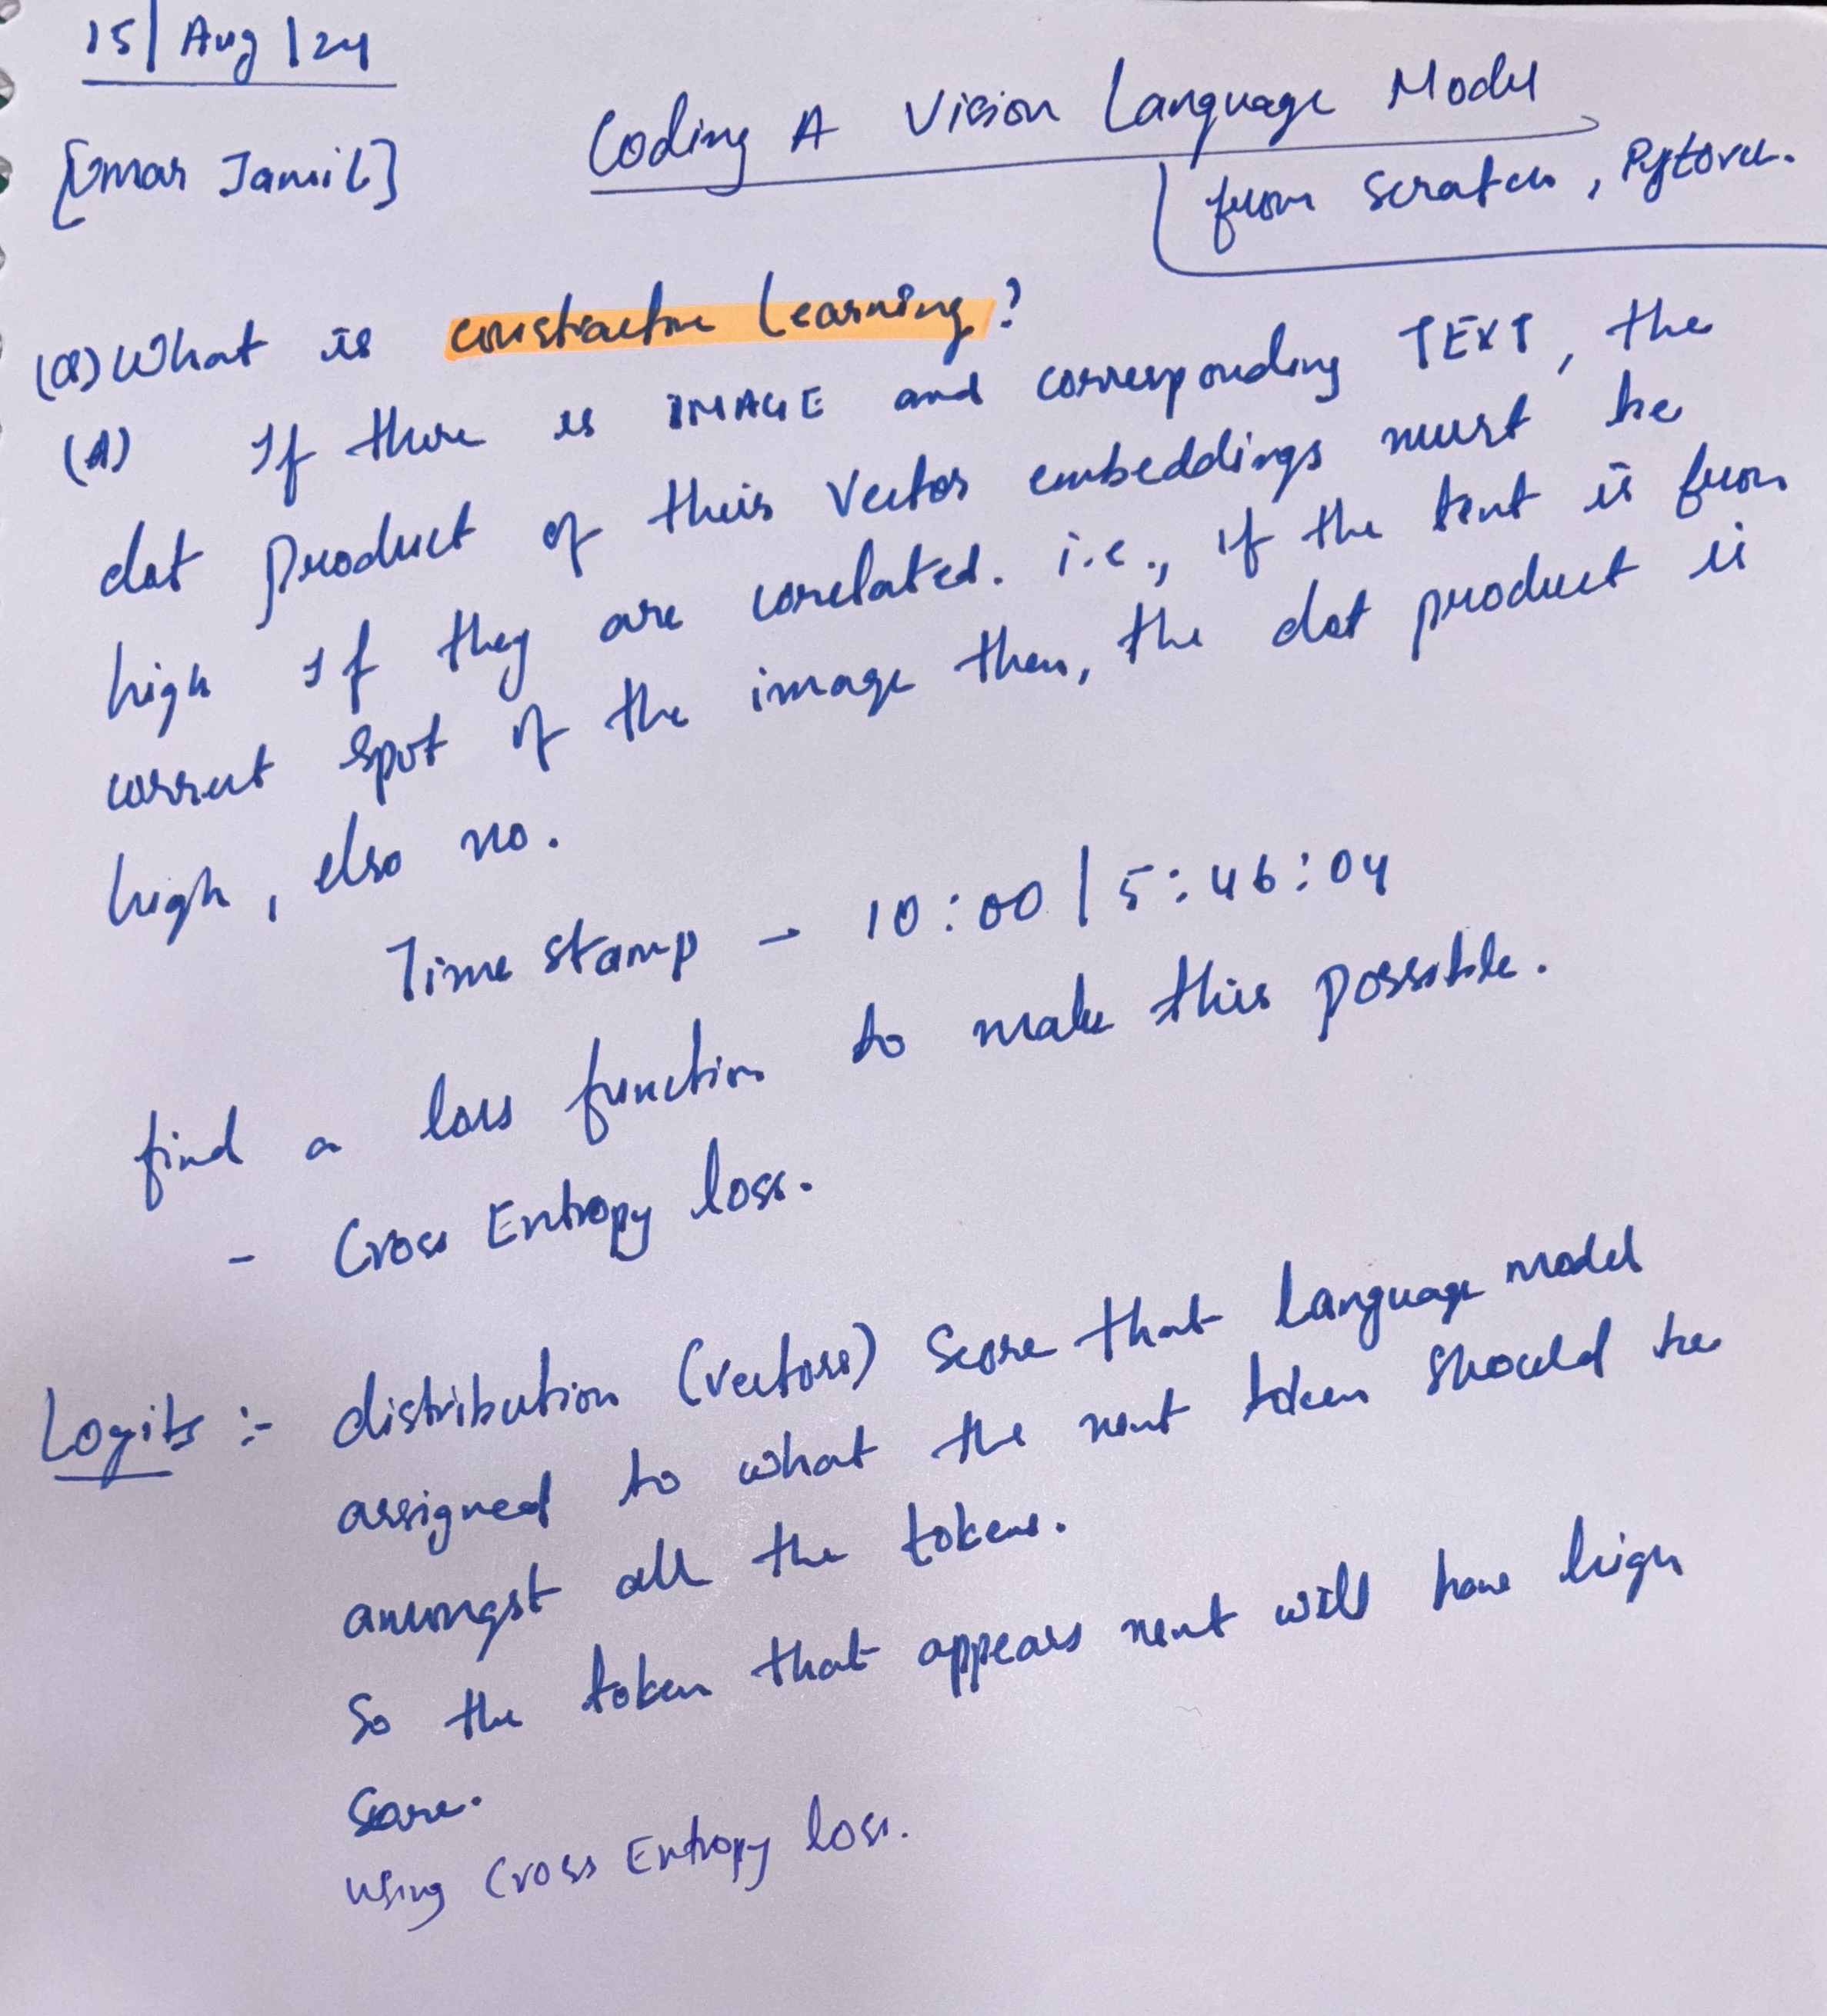 15/Aug/24
[Umar Jamil]
Coding A Vision Language Model
from scratch, Pytorch.
(Q) What is constractive learning?
(A) If there is IMAGE and corresponding TEXT, the
dot product of their vector embeddings must be
high if they are corelated. i.e., if the text is from
correct spot of the image then, the dot product is
high, else no.
Time stamp - 10:00 / 5:46:04
find a loss function to make this possible.
- Cross Entropy loss.
Logits :- distribution (vectors) score that language model
assigned to what the next token should be
amongst all the tokens.
So the token that appears next will have high
score.
using Cross Entropy loss.